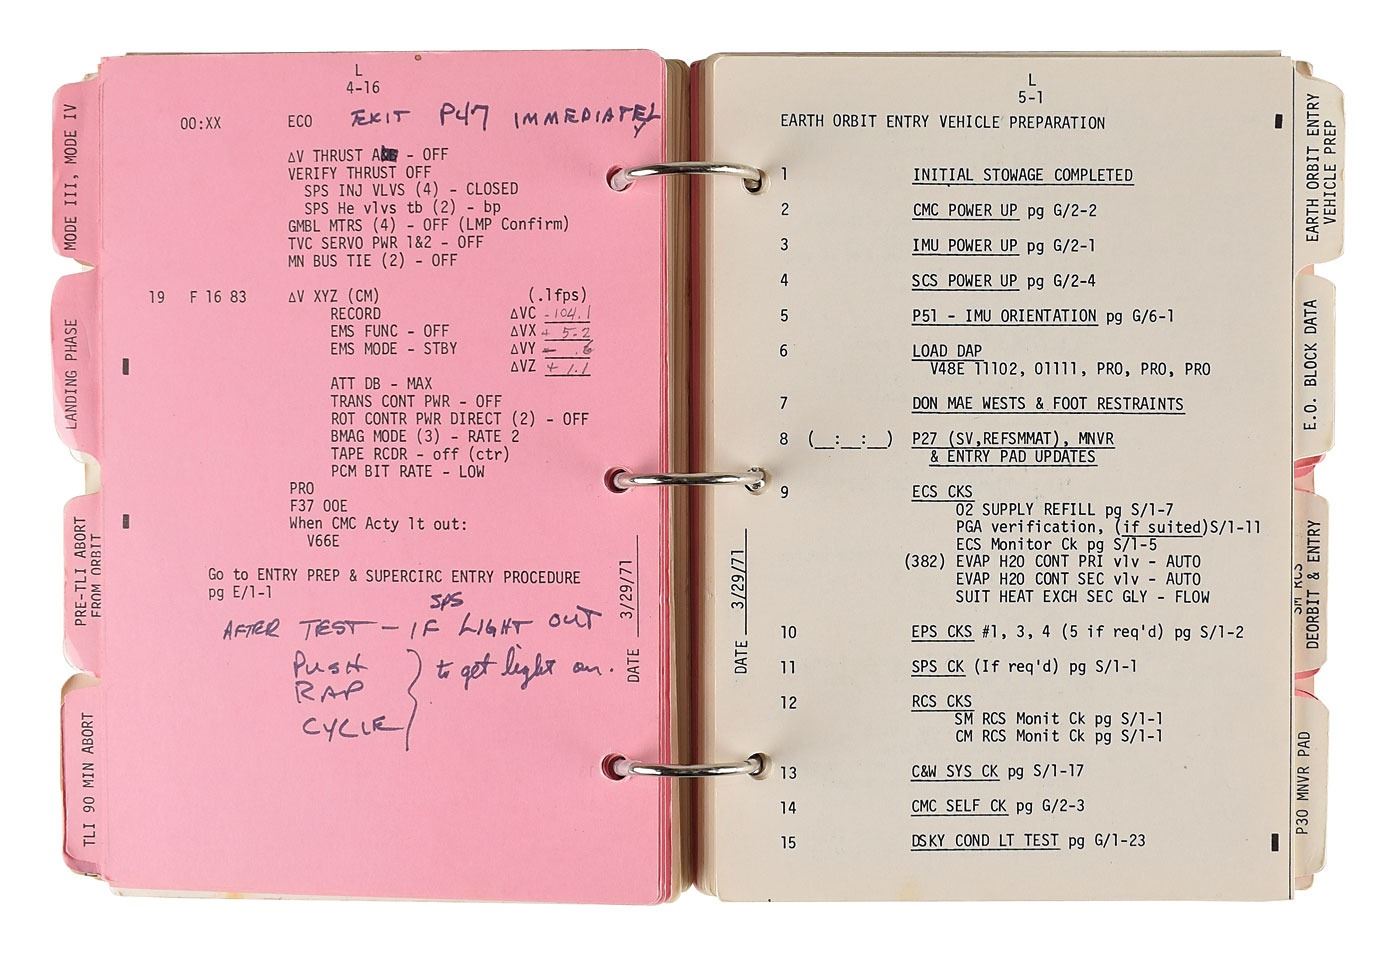 MODE III, MODE IV
LANDING PHASE
PRE-TLI ABORT
FROM ORBIT
TLI 90 MIN ABORT
L
4-16
00:XX ECO EXIT P47 IMMEDIATELY
ΔV THRUST - OFF
VERIFY THRUST OFF
SPS INJ VLVS (4) - CLOSED
SPS He vlvs tb (2) - bp
GMBL MTRS (4) - OFF (LMP Confirm)
TVC SERVO PWR 1&2 - OFF
MN BUS TIE (2) - OFF
19 F 16 83 ΔV XYZ (CM) (.1fps)
RECORD ΔVC -104.1
EMS FUNC - OFF ΔVX + 5.2
EMS MODE - STBY ΔVY - .6
ΔVZ + 1.1
ATT DB - MAX
TRANS CONT PWR - OFF
ROT CONTR PWR DIRECT (2) - OFF
BMAG MODE (3) - RATE 2
TAPE RCDR - off (ctr)
PCM BIT RATE - LOW
PRO
F37 OOE
When CMC Acty lt out:
V66E
Go to ENTRY PREP & SUPERCIRC ENTRY PROCEDURE
pg E/1-1
SPS
AFTER TEST - IF LIGHT OUT
PUSH
RAP } to get light on.
CYCLE
DATE 3/29/71
L
5-1
EARTH ORBIT ENTRY VEHICLE PREPARATION
1 INITIAL STOWAGE COMPLETED
2 CMC POWER UP pg G/2-2
3 IMU POWER UP pg G/2-1
4 SCS POWER UP pg G/2-4
5 P51 - IMU ORIENTATION pg G/6-1
6 LOAD DAP
V48E 11102, 01111, PRO, PRO, PRO
7 DON MAE WESTS & FOOT RESTRAINTS
8 (__:__:__) P27 (SV,REFSMMAT), MNVR
& ENTRY PAD UPDATES
9 ECS CKS
O2 SUPPLY REFILL pg S/1-7
PGA verification, (if suited)S/1-11
ECS Monitor Ck pg S/1-5
(382) EVAP H2O CONT PRI vlv - AUTO
EVAP H2O CONT SEC vlv - AUTO
SUIT HEAT EXCH SEC GLY - FLOW
10 EPS CKS #1, 3, 4 (5 if req'd) pg S/1-2
11 SPS CK (If req'd) pg S/1-1
12 RCS CKS
SM RCS Monit Ck pg S/1-1
CM RCS Monit Ck pg S/1-1
13 C&W SYS CK pg S/1-17
14 CMC SELF CK pg G/2-3
15 DSKY COND LT TEST pg G/1-23
DATE 3/29/71
EARTH ORBIT ENTRY
VEHICLE PREP
E.O. BLOCK DATA
SM RCS
DEORBIT & ENTRY
P30 MNVR PAD